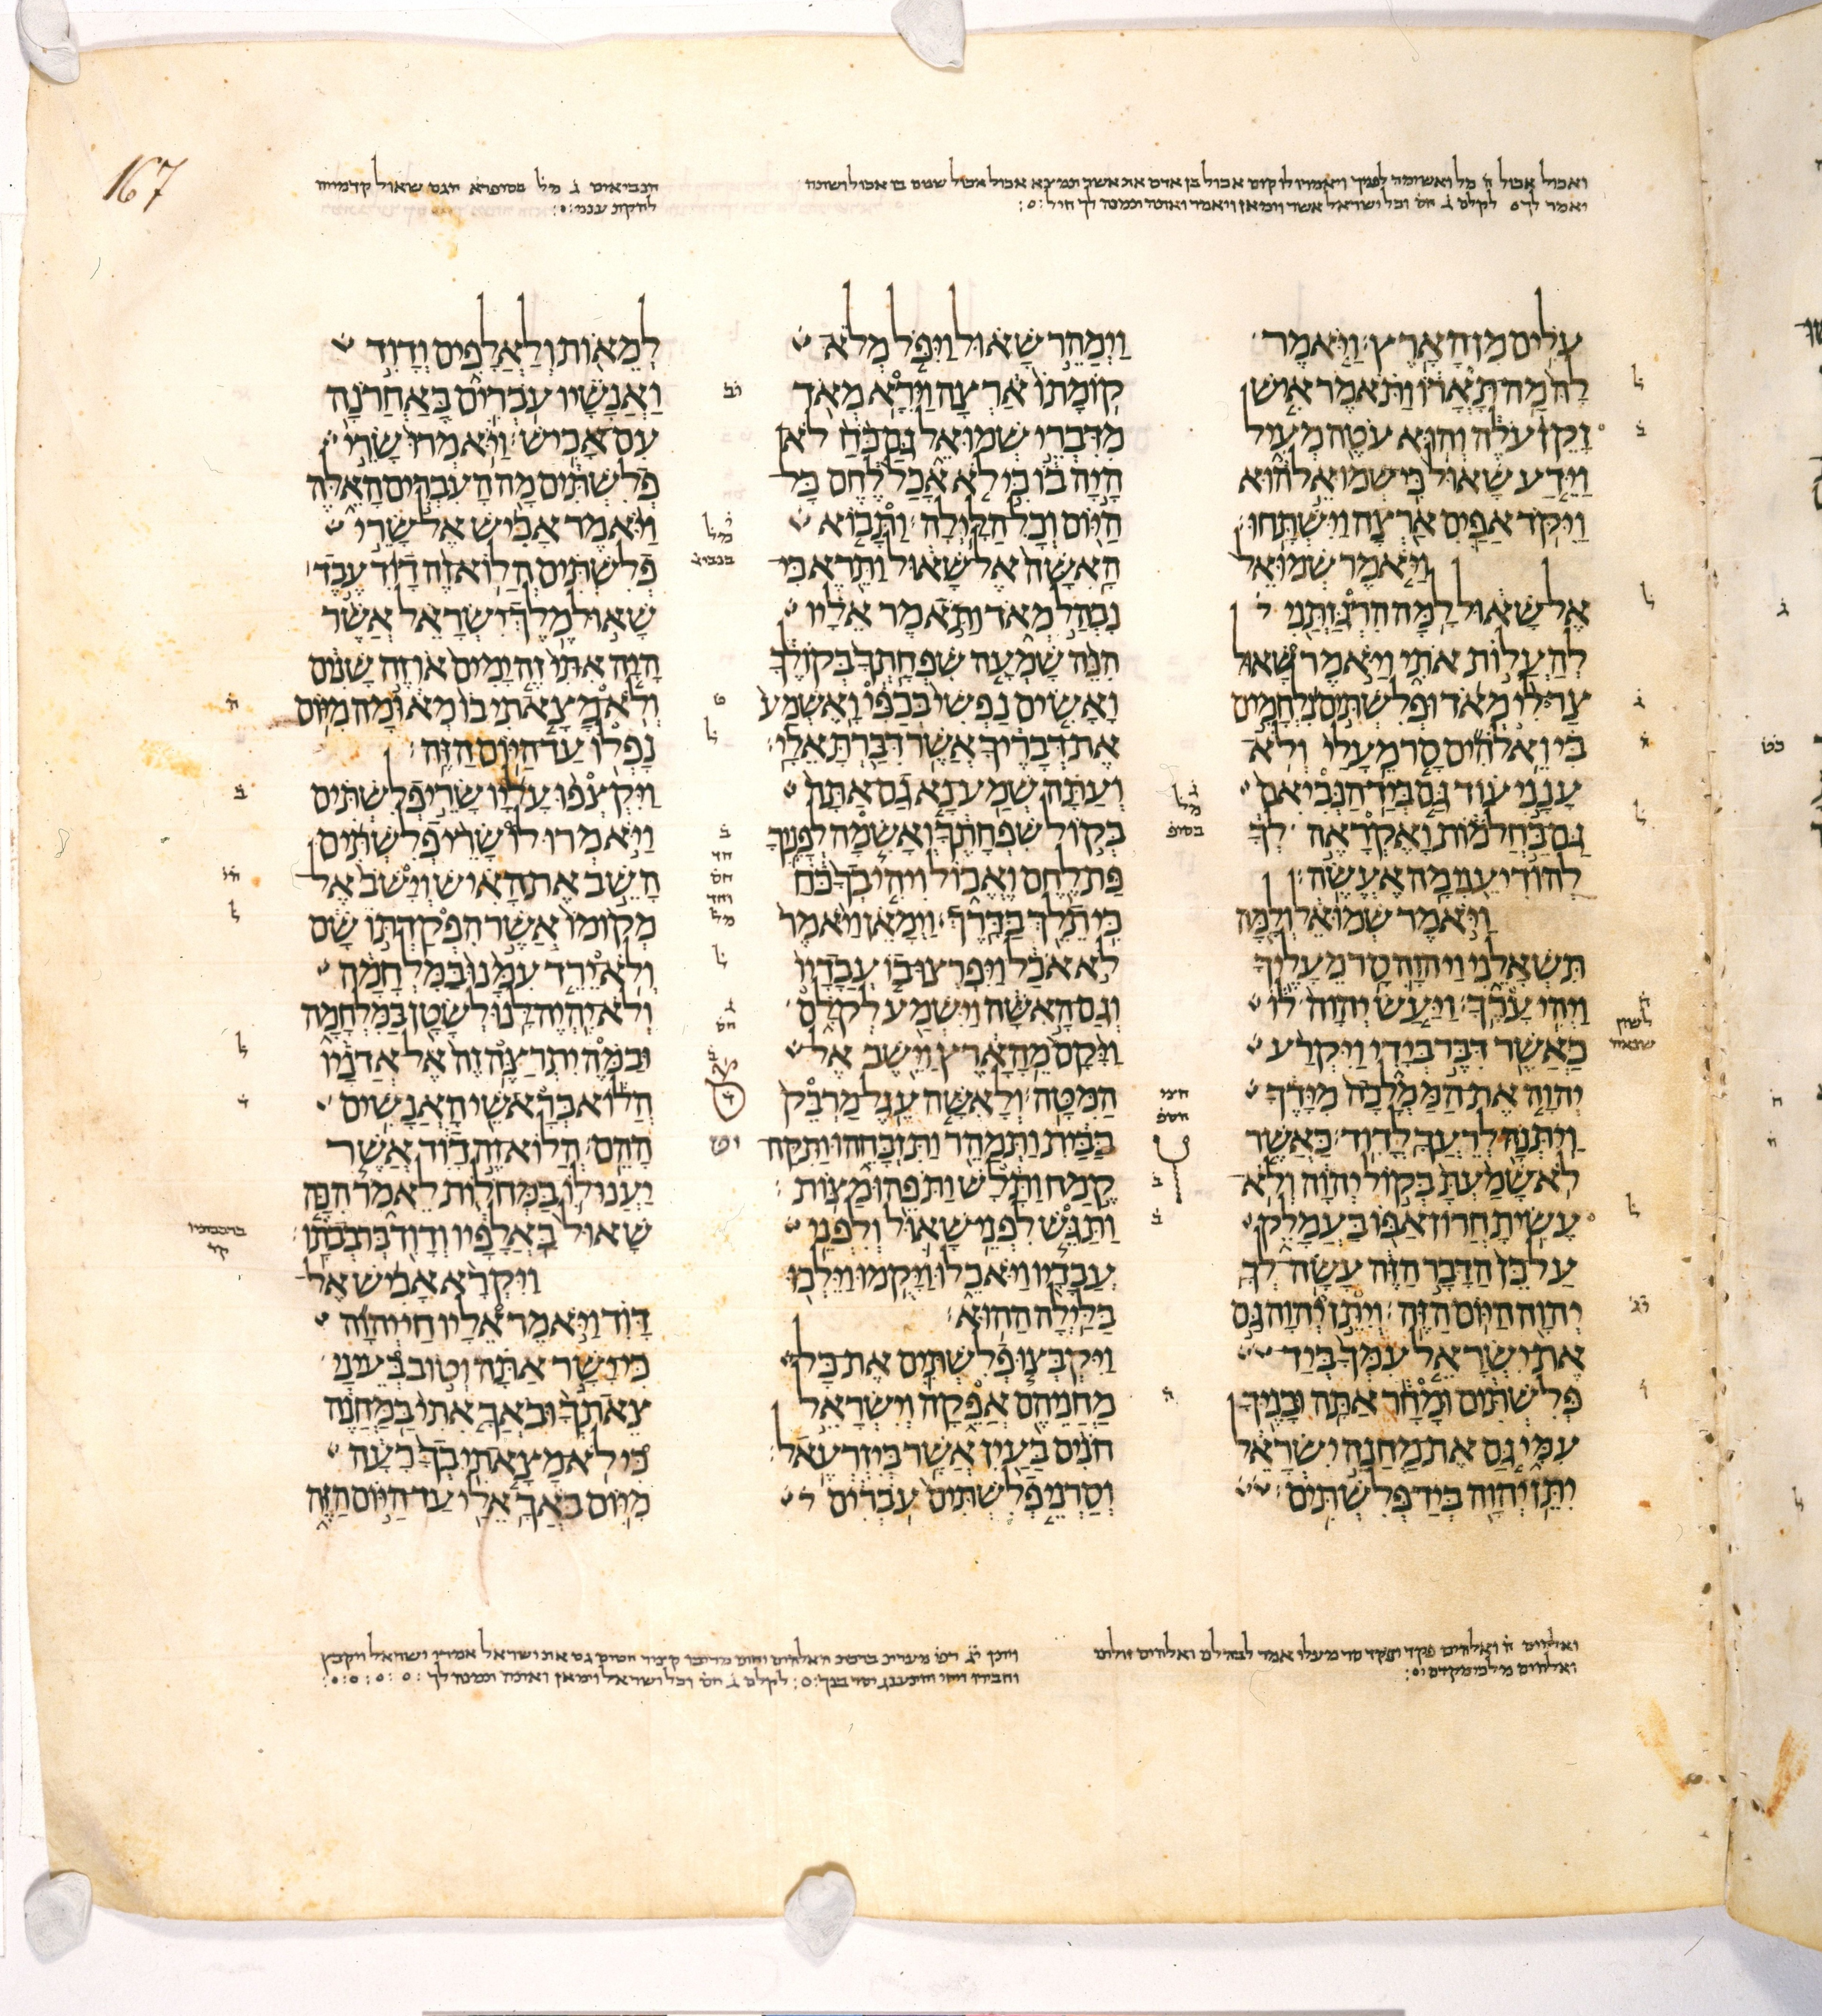 167
עֹלִים מִן הָאָרֶץ׃ וַיֹּאמֶר
לָהּ מַה תָּאֳרוֹ וַתֹּאמֶר אִישׁ
זָקֵן עֹלֶה וְהוּא עֹטֶה מְעִיל
וַיֵּדַע שָׁאוּל כִּי שְׁמוּאֵל הוּא
וַיִּקֹּד אַפַּיִם אַרְצָה וַיִּשְׁתָּחוּ׃
וַיֹּאמֶר שְׁמוּאֵל
אֶל שָׁאוּל לָמָּה הִרְגַּזְתַּנִי
לְהַעֲלוֹת אֹתִי וַיֹּאמֶר שָׁאוּל
צַר לִי מְאֹד וּפְלִשְׁתִּים נִלְחָמִים
בִּי וֵאלֹהִים סָר מֵעָלַי וְלֹא
עָנָנִי עוֹד גַּם בְּיַד הַנְּבִיאִם
גַּם בַּחֲלֹמוֹת וָאֶקְרָאֶה לְךָ
לְהוֹדִיעֵנִי מָה אֶעֱשֶׂה׃
וַיֹּאמֶר שְׁמוּאֵל וְלָמָּה
תִּשְׁאָלֵנִי וַיהוָה סָר מֵעָלֶיךָ
וַיְהִי עָרֶךָ׃ וַיַּעַשׂ יְהוָה לוֹ
כַּאֲשֶׁר דִּבֶּר בְּיָדִי וַיִּקְרַע
יְהוָה אֶת הַמַּמְלָכָה מִיָּדֶךָ
וַיִּתְּנָהּ לְרֵעֲךָ לְדָוִד׃ כַּאֲשֶׁר
לֹא שָׁמַעְתָּ בְּקוֹל יְהוָה וְלֹא
עָשִׂיתָ חֲרוֹן אַפּוֹ בַּעֲמָלֵק
עַל כֵּן הַדָּבָר הַזֶּה עָשָׂה לְךָ
יְהוָה הַיּוֹם הַזֶּה׃ וְיִתֵּן יְהוָה גַּם
אֶת יִשְׂרָאֵל עִמְּךָ בְּיַד
פְּלִשְׁתִּים וּמָחָר אַתָּה וּבָנֶיךָ
עִמִּי גַּם אֶת מַחֲנֵה יִשְׂרָאֵל
יִתֵּן יְהוָה בְּיַד פְּלִשְׁתִּים׃
וַיְמַהֵר שָׁאוּל וַיִּפֹּל מְלֹא
קוֹמָתוֹ אַרְצָה וַיִּרָא מְאֹד
מִדִּבְרֵי שְׁמוּאֵל גַּם כֹּחַ לֹא
הָיָה בוֹ כִּי לֹא אָכַל לֶחֶם כָּל
הַיּוֹם וְכָל הַלָּיְלָה׃ וַתָּבוֹא
הָאִשָּׁה אֶל שָׁאוּל וַתֵּרֶא כִּי
נִבְהַל מְאֹד וַתֹּאמֶר אֵלָיו
הִנֵּה שָׁמְעָה שִׁפְחָתְךָ בְּקוֹלֶךָ
וָאָשִׂים נַפְשִׁי בְּכַפִּי וָאֶשְׁמַע
אֶת דְּבָרֶיךָ אֲשֶׁר דִּבַּרְתָּ אֵלָי׃
וְעַתָּה שְׁמַע נָא גַם אַתָּה
בְּקוֹל שִׁפְחָתֶךָ וְאָשִׂמָה לְפָנֶיךָ
פַּת לֶחֶם וֶאֱכוֹל וִיהִי בְךָ כֹּחַ
כִּי תֵלֵךְ בַּדָּרֶךְ׃ וַיְמָאֵן וַיֹּאמֶר
לֹא אֹכַל וַיִּפְרְצוּ בוֹ עֲבָדָיו
וְגַם הָאִשָּׁה וַיִּשְׁמַע לְקֹלָם
וַיָּקָם מֵהָאָרֶץ וַיֵּשֶׁב אֶל
הַמִּטָּה׃ וְלָאִשָּׁה עֵגֶל מַרְבֵּק
בַּבַּיִת וַתְּמַהֵר וַתִּזְבָּחֵהוּ וַתִּקַּח
קֶמַח וַתָּלָשׁ וַתֹּפֵהוּ מַצּוֹת׃
וַתַּגֵּשׁ לִפְנֵי שָׁאוּל וְלִפְנֵי
עֲבָדָיו וַיֹּאכֵלוּ וַיָּקֻמוּ וַיֵּלְכוּ
בַּלַּיְלָה הַהוּא׃
וַיִּקְבְּצוּ פְלִשְׁתִּים אֶת כָּל
מַחֲנֵיהֶם אֲפֵקָה וְיִשְׂרָאֵל
חֹנִים בַּעַיִן אֲשֶׁר בְּיִזְרְעֶאל׃
וְסַרְנֵי פְלִשְׁתִּים עֹבְרִים
לְמֵאוֹת וְלַאֲלָפִים וְדָוִד
וַאֲנָשָׁיו עֹבְרִים בָּאַחֲרֹנָה
עִם אָכִישׁ׃ וַיֹּאמְרוּ שָׂרֵי
פְלִשְׁתִּים מָה הָעִבְרִים הָאֵלֶּה
וַיֹּאמֶר אָכִישׁ אֶל שָׂרֵי
פְלִשְׁתִּים הֲלוֹא זֶה דָוִד עֶבֶד
שָׁאוּל מֶלֶךְ יִשְׂרָאֵל אֲשֶׁר
הָיָה אִתִּי זֶה יָמִים אוֹ זֶה שָׁנִים
וְלֹא מָצָאתִי בוֹ מְאוּמָה מִיּוֹם
נָפְלוֹ עַד הַיּוֹם הַזֶּה׃
וַיִּקְצְפוּ עָלָיו שָׂרֵי פְלִשְׁתִּים
וַיֹּאמְרוּ לוֹ שָׂרֵי פְלִשְׁתִּים
הָשֵׁב אֶת הָאִישׁ וְיָשֹׁב אֶל
מְקוֹמוֹ אֲשֶׁר הִפְקַדְתּוֹ שָׁם
וְלֹא יֵרֵד עִמָּנוּ בַּמִּלְחָמָה
וְלֹא יִהְיֶה לָּנוּ לְשָׂטָן בַּמִּלְחָמָה
וּבַמֶּה יִתְרַצֶּה זֶה אֶל אֲדֹנָיו
הֲלוֹא בְּרָאשֵׁי הָאֲנָשִׁים
הָהֵם׃ הֲלוֹא זֶה דָוִד אֲשֶׁר
יַעֲנוּ לוֹ בַּמְּחֹלוֹת לֵאמֹר הִכָּה
שָׁאוּל בַּאֲלָפָיו וְדָוִד בְּרִבְבֹתָו׃
וַיִּקְרָא אָכִישׁ אֶל
דָּוִד וַיֹּאמֶר אֵלָיו חַי יְהוָה
כִּי יָשָׁר אַתָּה וְטוֹב בְּעֵינַי
צֵאתְךָ וּבֹאֲךָ אִתִּי בַּמַּחֲנֶה
כִּי לֹא מָצָאתִי בְךָ רָעָה
מִיּוֹם בֹּאֲךָ אֵלַי עַד הַיּוֹם הַזֶּה